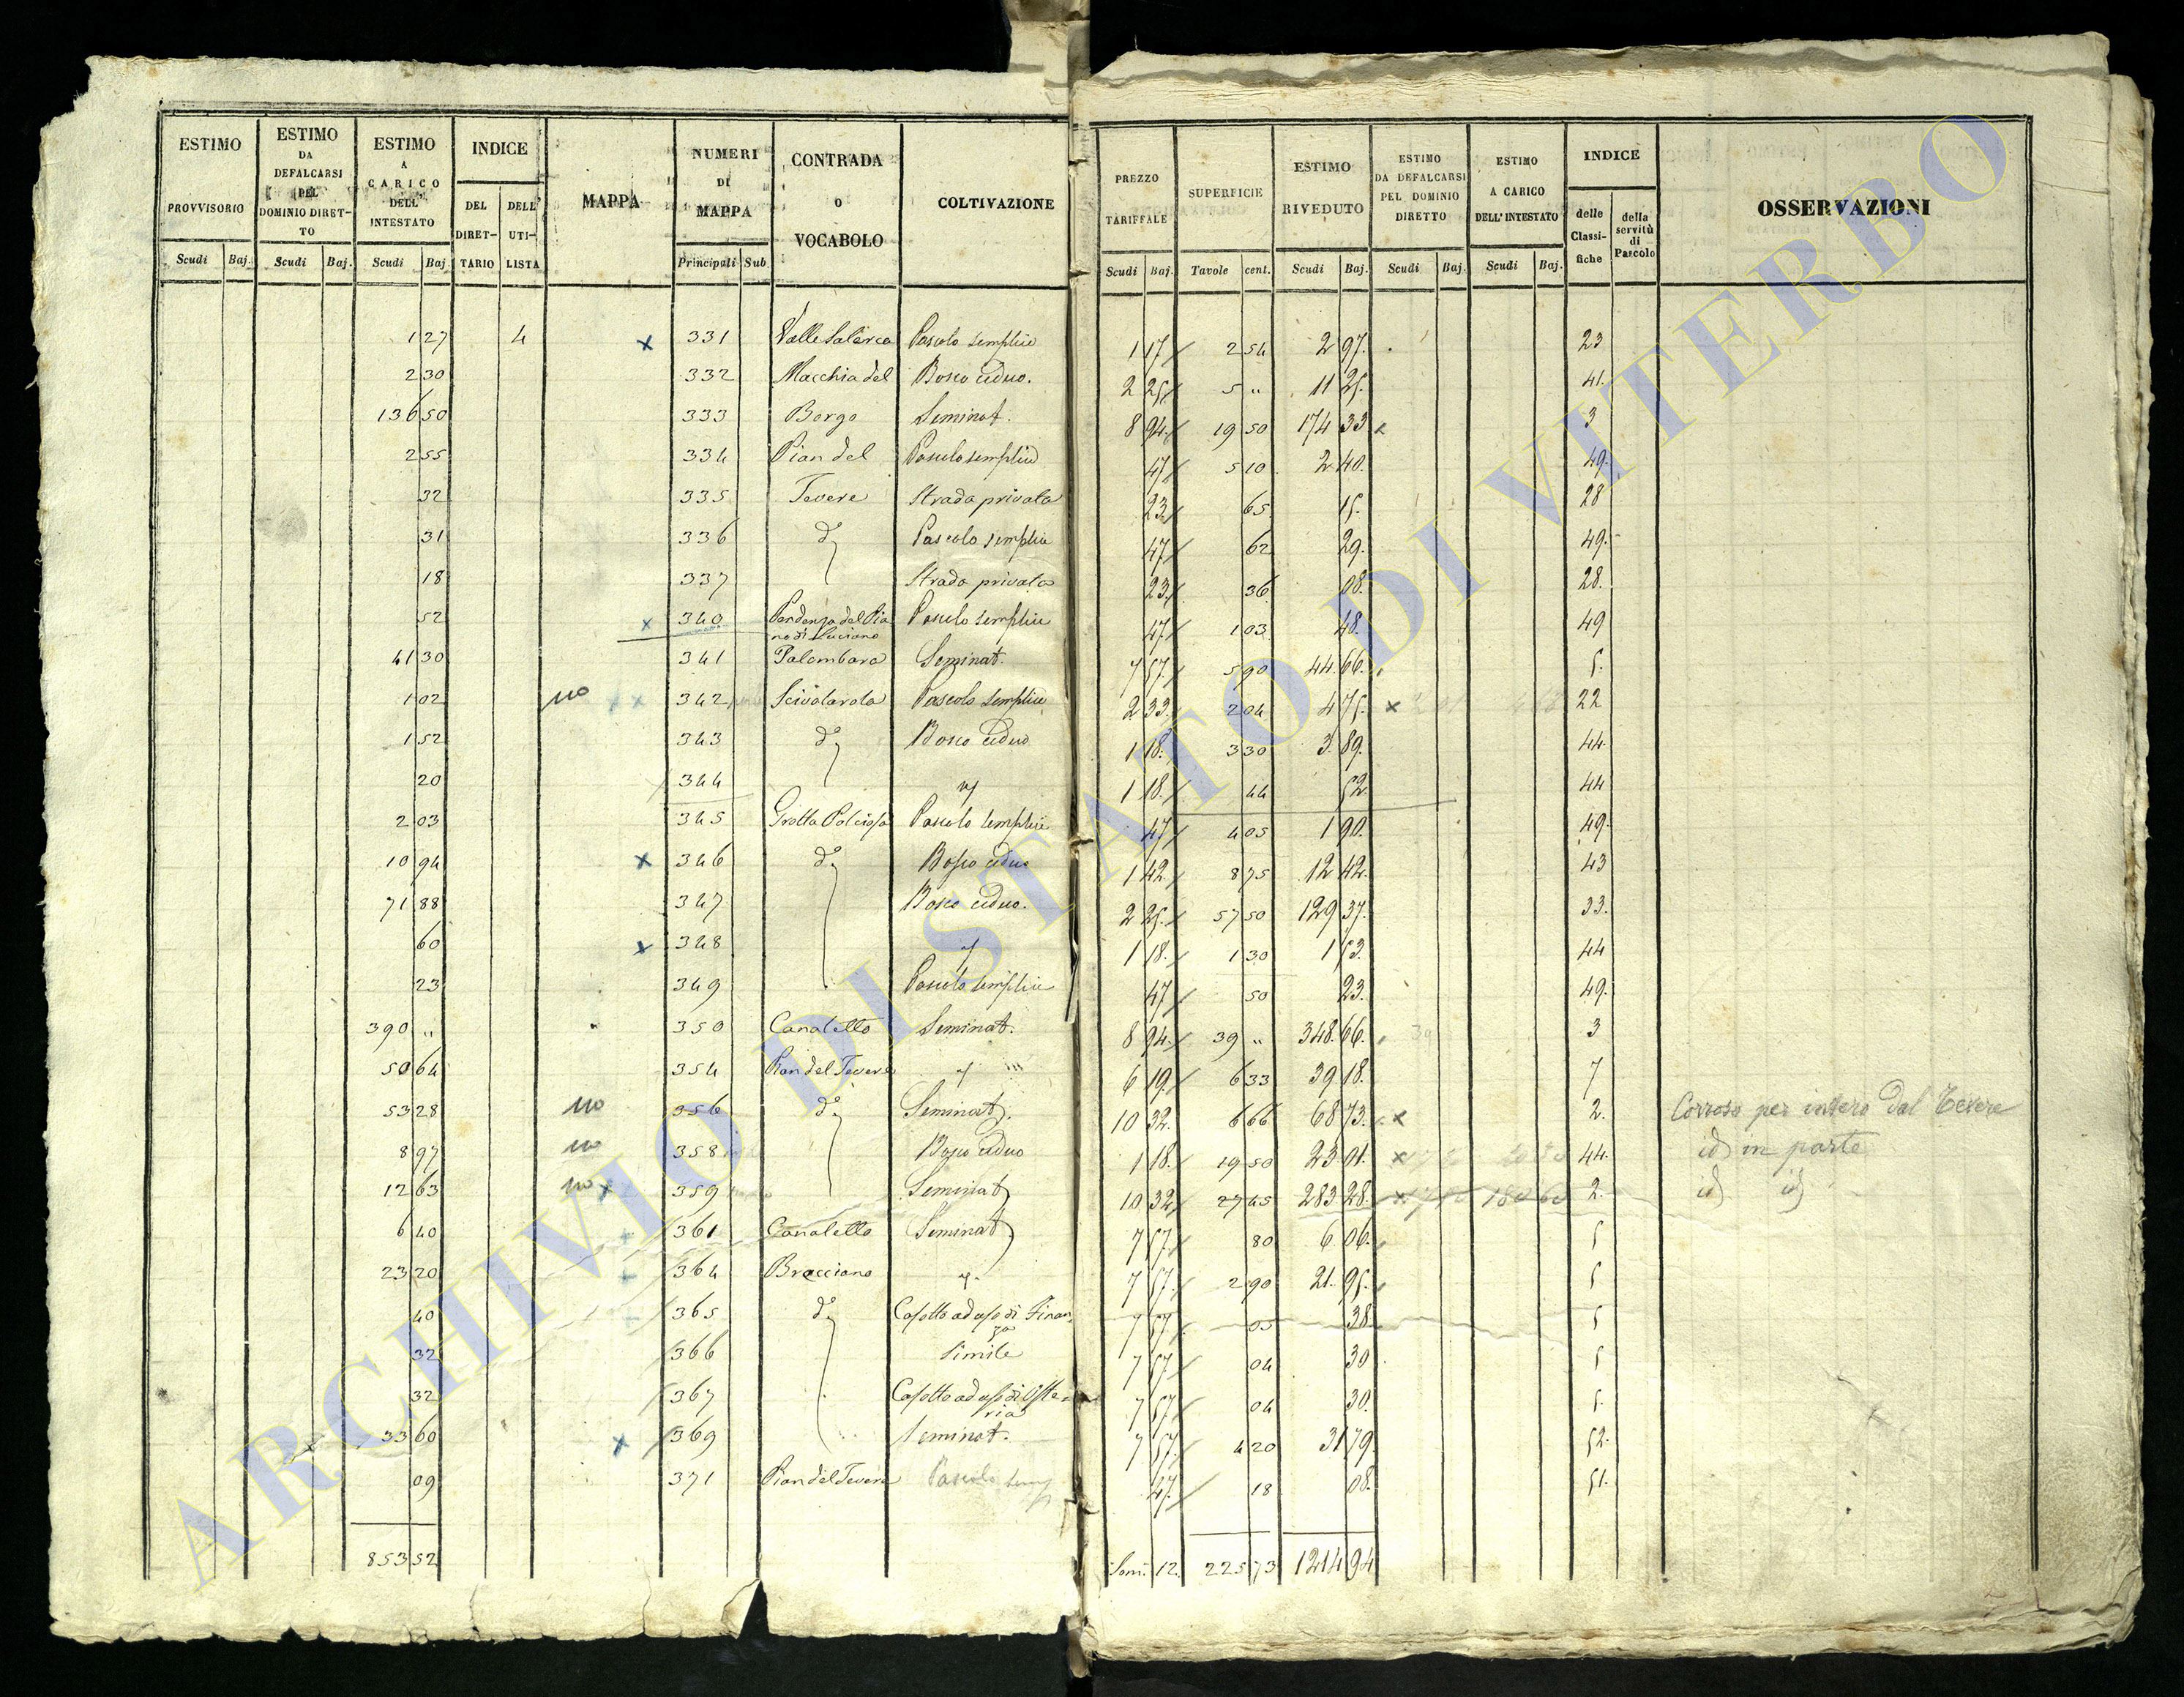 ESTIMO PROVVISORIO | ESTIMO DA DEFALCARSI DEL DOMINIO DIRET-TO | ESTIMO A CARICO DELL' INTESTATO | INDICE | MAPPA | NUMERI DI MAPPA | CONTRADA O VOCABOLO | COLTIVAZIONE | PREZZO TARIFFALE | SUPERFICIE | ESTIMO RIVEDUTO | ESTIMO DA DEFALCARSI PEL DOMINIO DIRETTO | ESTIMO A CARICO DELL' INTESTATO | INDICE | OSSERVAZIONI
DEL DIRET-TARIO | DELL' UTI-LISTA | delle Classi-fiche | della servitù di Pascolo
Scudi | Baj. | Scudi | Baj. | Scudi | Baj. | Principali | Sub | Scudi | Baj. | Tavole | cent. | Scudi | Baj. | Scudi | Baj. | Scudi | Baj.
1 27 | 4 | x | 331 | Valle | Pascolo semplice | 1 17 | 2 54 | 2 97. | 23
2 30 | 332 | Macchia del | Bosco ceduo. | 2 25 | 5 " | 11 25. | 41.
136 50 | 333 | Borgo | Seminat. | 8 94 | 19 50 | 174 33 | 3
2 55 | 334 | Pian del | Pascolo semplice | 47 | 5 10 | 2 40. | 49.
32 | 335 | Tevere | Strada privata | 23 | 65 | 15. | 28
31 | 336 | do | Pascolo semplice | 47 | 62 | 29. | 49.
18 | 337 | Strada privata | 23 | 36 | 08. | 28.
52 | x | 340 | Pendenza del Piano di Luciano | Pascolo semplice | 47 | 1 03 | 48. | 49
41 30 | 341 | Palombara | Seminat. | 7 57 | 5 90 | 44.66. | 5.
1 02 | no | x | 342 | Scivolarola | Pascolo semplice | 2 33. | 2 04 | 4 75. | x | 22
1 52 | 343 | do | Bosco ceduo | 1 18. | 3 30 | 3.89. | 44.
20 | 344 | 1 18. | 44 | 52. | 44
2 03 | 345 | Grotta | Pascolo semplice | 47 | 4 05 | 1 90. | 49.
10 94 | x | 346 | do | Bosco ceduo | 1 42 | 8 75 | 12 42. | 43
71 88 | 347 | Bosco ceduo. | 2 25 | 57 50 | 129 37. | 33.
60 | x | 348 | 1 18. | 1 30 | 1 53. | 44
23 | 349 | Pascolo semplice | 47 | 50 | 23. | 49.
390 " | 350 | Canaletto | Seminat. | 8 94 | 39 " | 348.66. | 3
50 64 | 354 | Pian del Tevere | 6 19 | 6 33 | 39 18. | 7
53 28 | no | 356 | do | Seminat. | 10 32. | 6 66 | 68 73. | x | 2. | Corroso per intero dal Tevere
8 97 | no | 358 | Bosco ceduo | 1 18. | 19 50 | 23 01. | x | 44. | id in parte
12 63 | no x | 359 | Seminat | 10 32 | 27 45 | 283 28. | x | 2. | id id
6 40 | 361 | Canaletto | Seminat | 7 57 | 80 | 6.06. | 5
23 20 | 364 | Bracciano | 7 57 | 2 90 | 21.95. | 5
40 | 365 | do | Casotto ad uso di Finanza | 7 57 | 05 | 38 | 5
32 | 366 | Simile | 7 57 | 04 | 30 | 5
32 | 367 | Casotto ad uso di Osteria | 7 57 | 04 | 30. | 5.
33 60 | x | 369 | Seminat. | 7 57 | 4 20 | 31 79. | 52.
09 | 371 | Pian del Tevere | Pascolo semp | 47 | 18 | 08. | 51.
853 52 | Som. 12. | 225 73 | 1214 94
ARCHIVIO DI STATO DI VITERBO